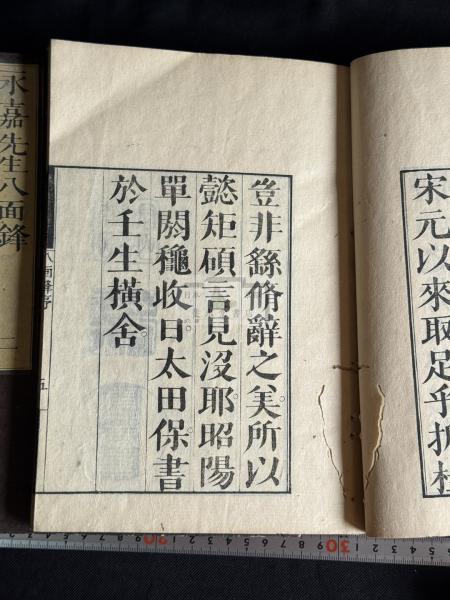 宋元以來取足乎折桂
豈非繇脩辭之美所以
懿矩碩言見沒耶昭陽
單閼龝收日太田保書
於壬生橫舍
八面鋒序
五
永嘉先生八面鋒